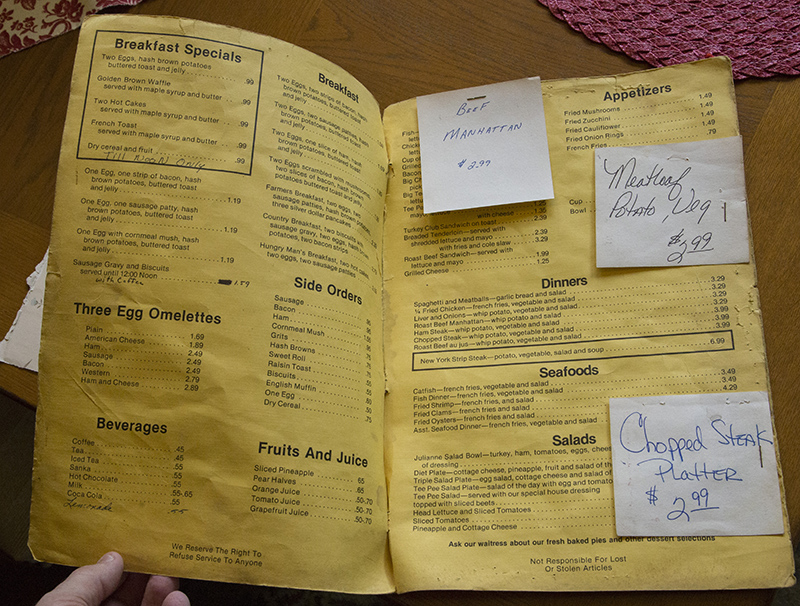 Breakfast Specials
Two Eggs, hash brown potatoes
buttered toast and jelly .99
Golden Brown Waffle
served with maple syrup and butter .99
Two Hot Cakes
served with maple syrup and butter .99
French Toast
served with maple syrup and butter .99
Dry cereal and fruit .99
Till Noon Only
One Egg, one strip of bacon, hash
brown potatoes, buttered toast
and jelly 1.19
One Egg, one sausage patty, hash
brown potatoes, buttered toast
and jelly 1.19
One Egg with cornmeal mush, hash
brown potatoes, buttered toast
and jelly 1.19
Sausage Gravy and Biscuits
served until 12:00 Noon 1.59
with Coffee
Three Egg Omelettes
Plain 1.69
American Cheese 1.89
Ham 2.49
Sausage 2.49
Bacon 2.49
Western 2.79
Ham and Cheese 2.89
Beverages
Coffee .45
Tea .45
Iced Tea .55
Sanka .55
Hot Chocolate .55
Milk .55-.65
Coca Cola .55
Lemonade .55
We Reserve The Right To
Refuse Service To Anyone
Breakfast
Two Eggs, two strips of bacon, hash
brown potatoes, buttered toast
and jelly
Two Eggs, two sausage patties, hash
brown potatoes, buttered toast
and jelly
Two Eggs, one slice of ham, hash
brown potatoes, buttered toast
and jelly
Two Eggs scrambled with mushrooms,
two slices of bacon, hash brown
potatoes buttered toast and jelly
Farmers Breakfast, two eggs, two
sausage patties, hash brown
three silver dollar pancakes
Country Breakfast, two biscuits and
sausage gravy, two eggs, hash
potatoes, two bacon strips
Hungry Man's Breakfast, two hot cakes,
two eggs, two sausage patties
Side Orders
Sausage
Bacon
Ham
Cornmeal Mush
Grits
Hash Browns
Sweet Roll
Raisin Toast
Biscuits
English Muffin .55
One Egg .50
Dry Cereal .75
Fruits And Juice
Sliced Pineapple .65
Pear Halves .65
Orange Juice .50-.70
Tomato Juice .50-.70
Grapefruit Juice .50-.70
Beef
Manhattan
$2.99
Fish
Chicken
Cup
Grilled
Bacon
Big
Big
Tee Pee
with cheese 1.35
Turkey Club Sandwich on toast 2.39
Breaded Tenderloin—served with
shredded lettuce and mayo 2.39
with fries and cole slaw 3.29
Roast Beef Sandwich—served with
lettuce and mayo 1.99
Grilled Cheese 1.25
Appetizers
Fried Mushrooms 1.49
Fried Zucchini 1.49
Fried Cauliflower 1.49
Fried Onion Rings 1.49
French Fries .79
Meatloaf
Potato, Veg
$2.99
Cup
Bowl
Dinners
Spaghetti and Meatballs—garlic bread and salad 3.29
¼ Fried Chicken—french fries, vegetable and salad 3.29
Liver and Onions—whip potato, vegetable and salad 3.29
Roast Beef Manhattan—whip potato and salad 3.99
Ham Steak—whip potato, vegetable and salad 3.99
Chopped Steak—whip potato, vegetable and salad 3.99
Roast Beef au jus—whip potato, vegetable and salad 3.99
New York Strip Steak—potato, vegetable, salad and soup 6.99
Seafoods
Catfish—french fries, vegetable and salad 3.49
Fish Dinner—french fries, vegetable and salad 3.49
Fried Shrimp—french fries, and salad 4.29
Fried Clams—french fries and salad
Fried Oysters—french fries and salad
Asst. Seafood Dinner—french fries, vegetable and salad
Salads
Julianne Salad Bowl—turkey, ham, tomatoes, eggs, cheese
of dressing
Diet Plate—cottage cheese, pineapple, fruit and salad of the
Triple Salad Plate—egg salad, cottage cheese and salad of
Tee Pee Salad Plate—salad of the day with egg and tomato
Tee Pee Salad—served with our special house dressing
topped with sliced beets
Head Lettuce and Sliced Tomatoes
Sliced Tomatoes
Pineapple and Cottage Cheese
Chopped Steak
Platter
$2.99
Ask our waitress about our fresh baked pies and other dessert selections
Not Responsible For Lost
Or Stolen Articles